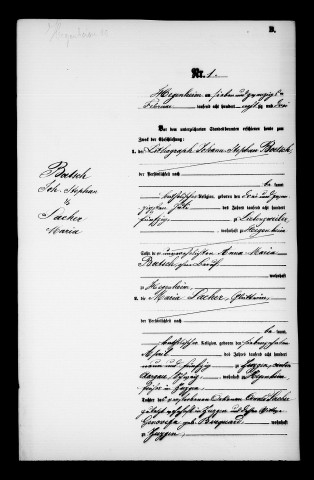 B.
Nr. 1.
Hegenheim am sieben und zwanzigsten
Februar tausend acht hundert achtzig und drei
Vor dem unterzeichneten Standesbeamten erschienen heute zum
Zweck der Eheschließung:
1. der Lithograph Johann Stephan Boetsch,
der Persönlichkeit nach
be kannt,
katholischer Religion, geboren den drei und zwan
zigsten Juli des Jahres tausend acht hundert
fünfzig zu Liebenzweiler
wohnhaft
zu Hegenheim
Sohn der unverehelichten Anna Maria
Boetsch, ohne Beruf
wohnhaft
zu Hegenheim.
2. die Maria Sacher,
der Persönlichkeit nach
be kannt,
katholischer Religion, geboren den siebenzehnten
April des Jahres tausend acht hundert
neun und fünfzig zu Zuzgen, Canton
Aargau, Schweiz wohnhaft Hegenheim,
früher in Zuzgen
Tochter des verstorbenen
zuletzt wohnhaft in Zuzgen und dessen Wittwe
Genovefa geb. wohnhaft
zu Zuzgen.
Boetsch
Joh. Stephan
&
Sacher
Maria